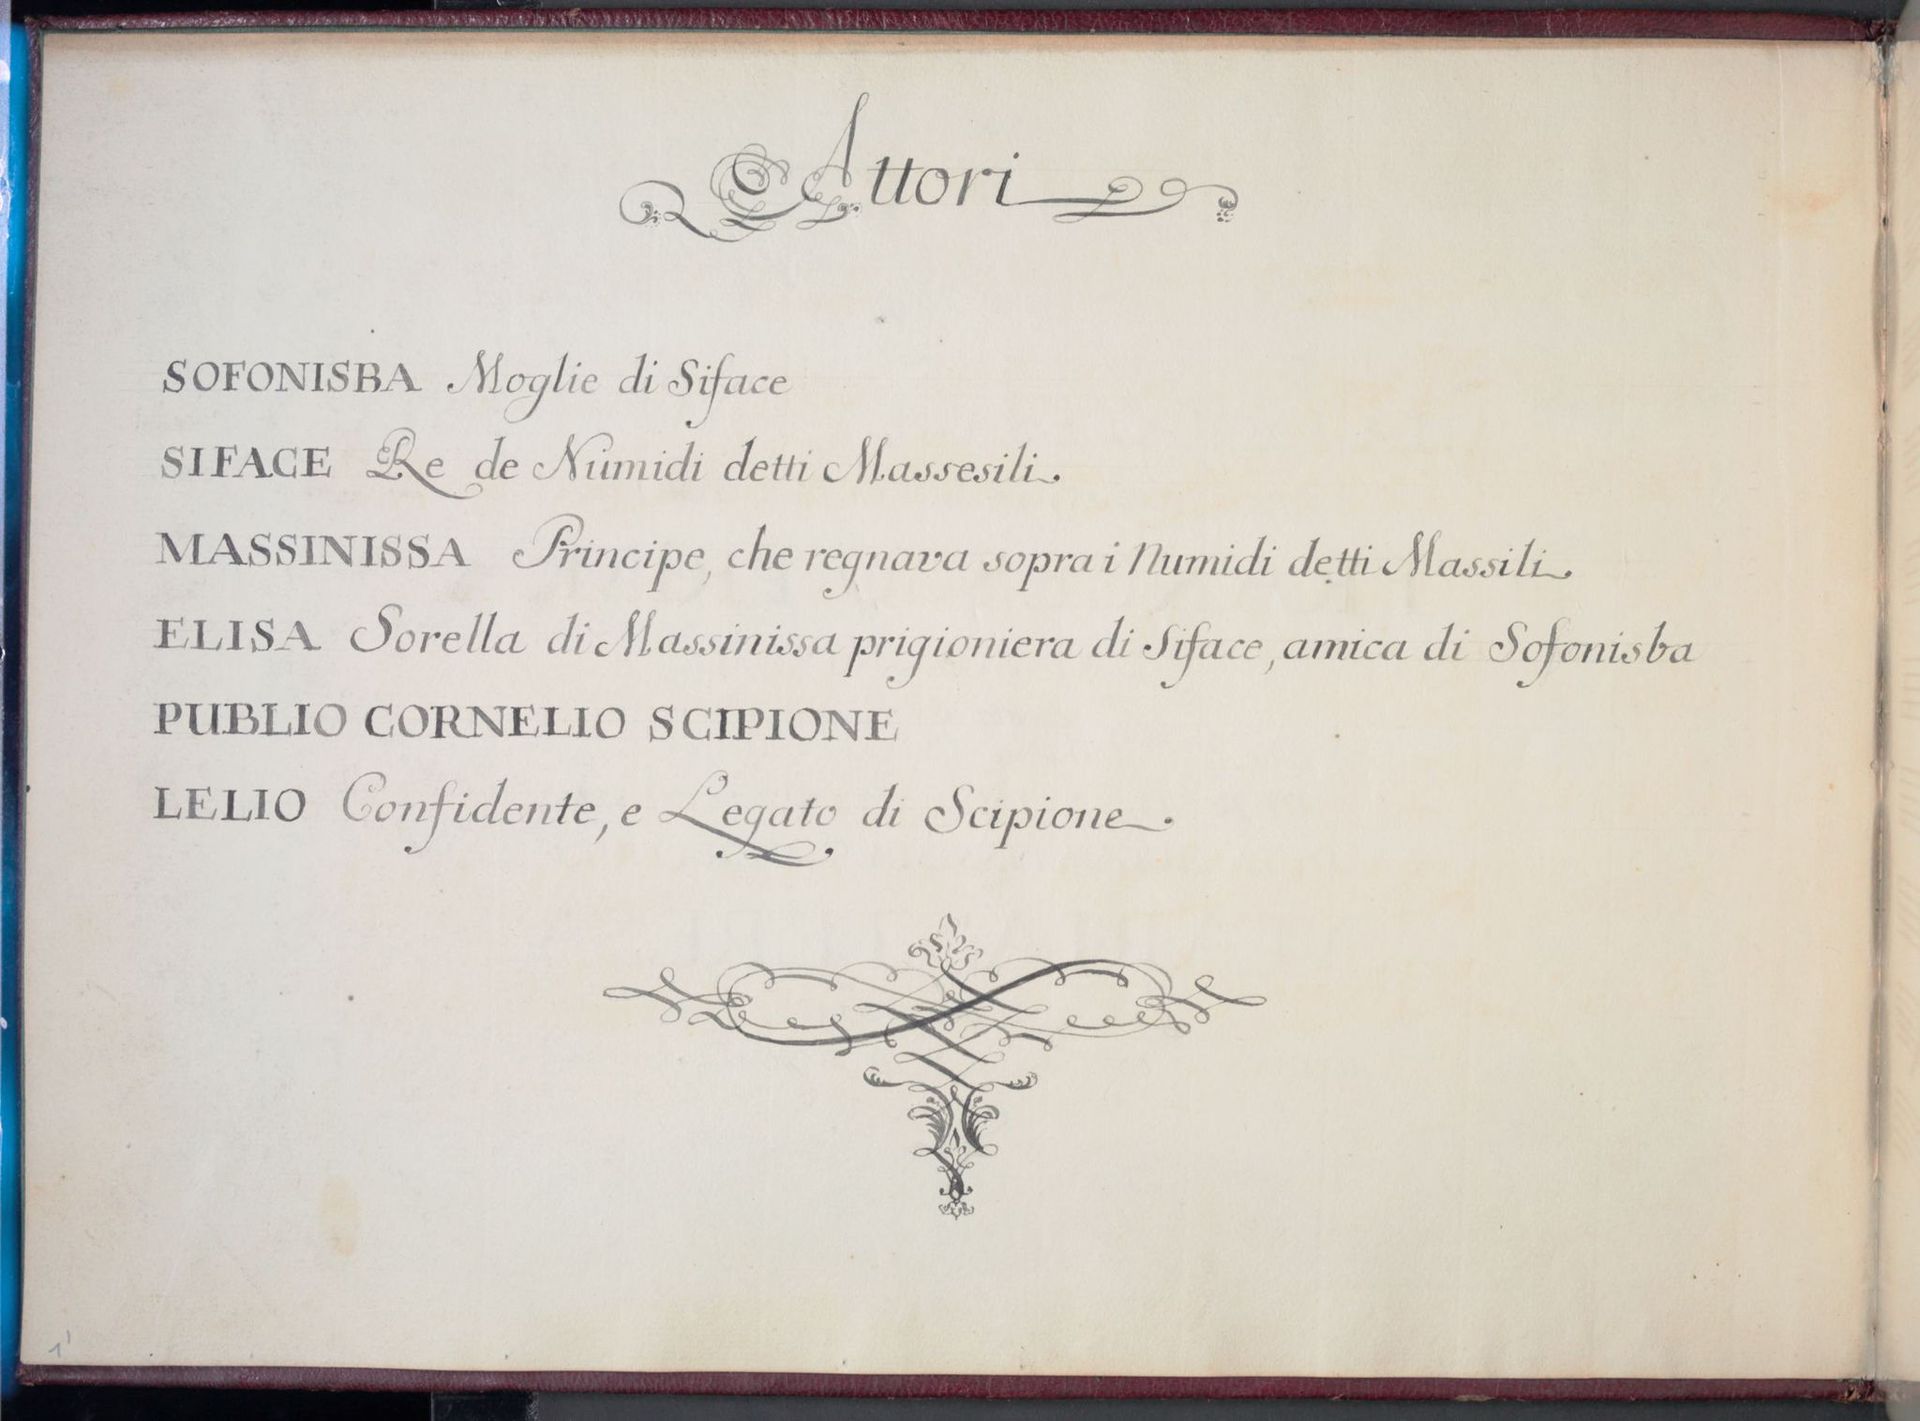 Attori
SOFONISBA Moglie di Siface
SIFACE Re de Numidi detti Massesili.
MASSINISSA Principe, che regnava sopra i Numidi detti Massili.
ELISA Sorella di Massinissa prigioniera di Siface, amica di Sofonisba
PUBLIO CORNELIO SCIPIONE
LELIO Confidente, e Legato di Scipione.
1'